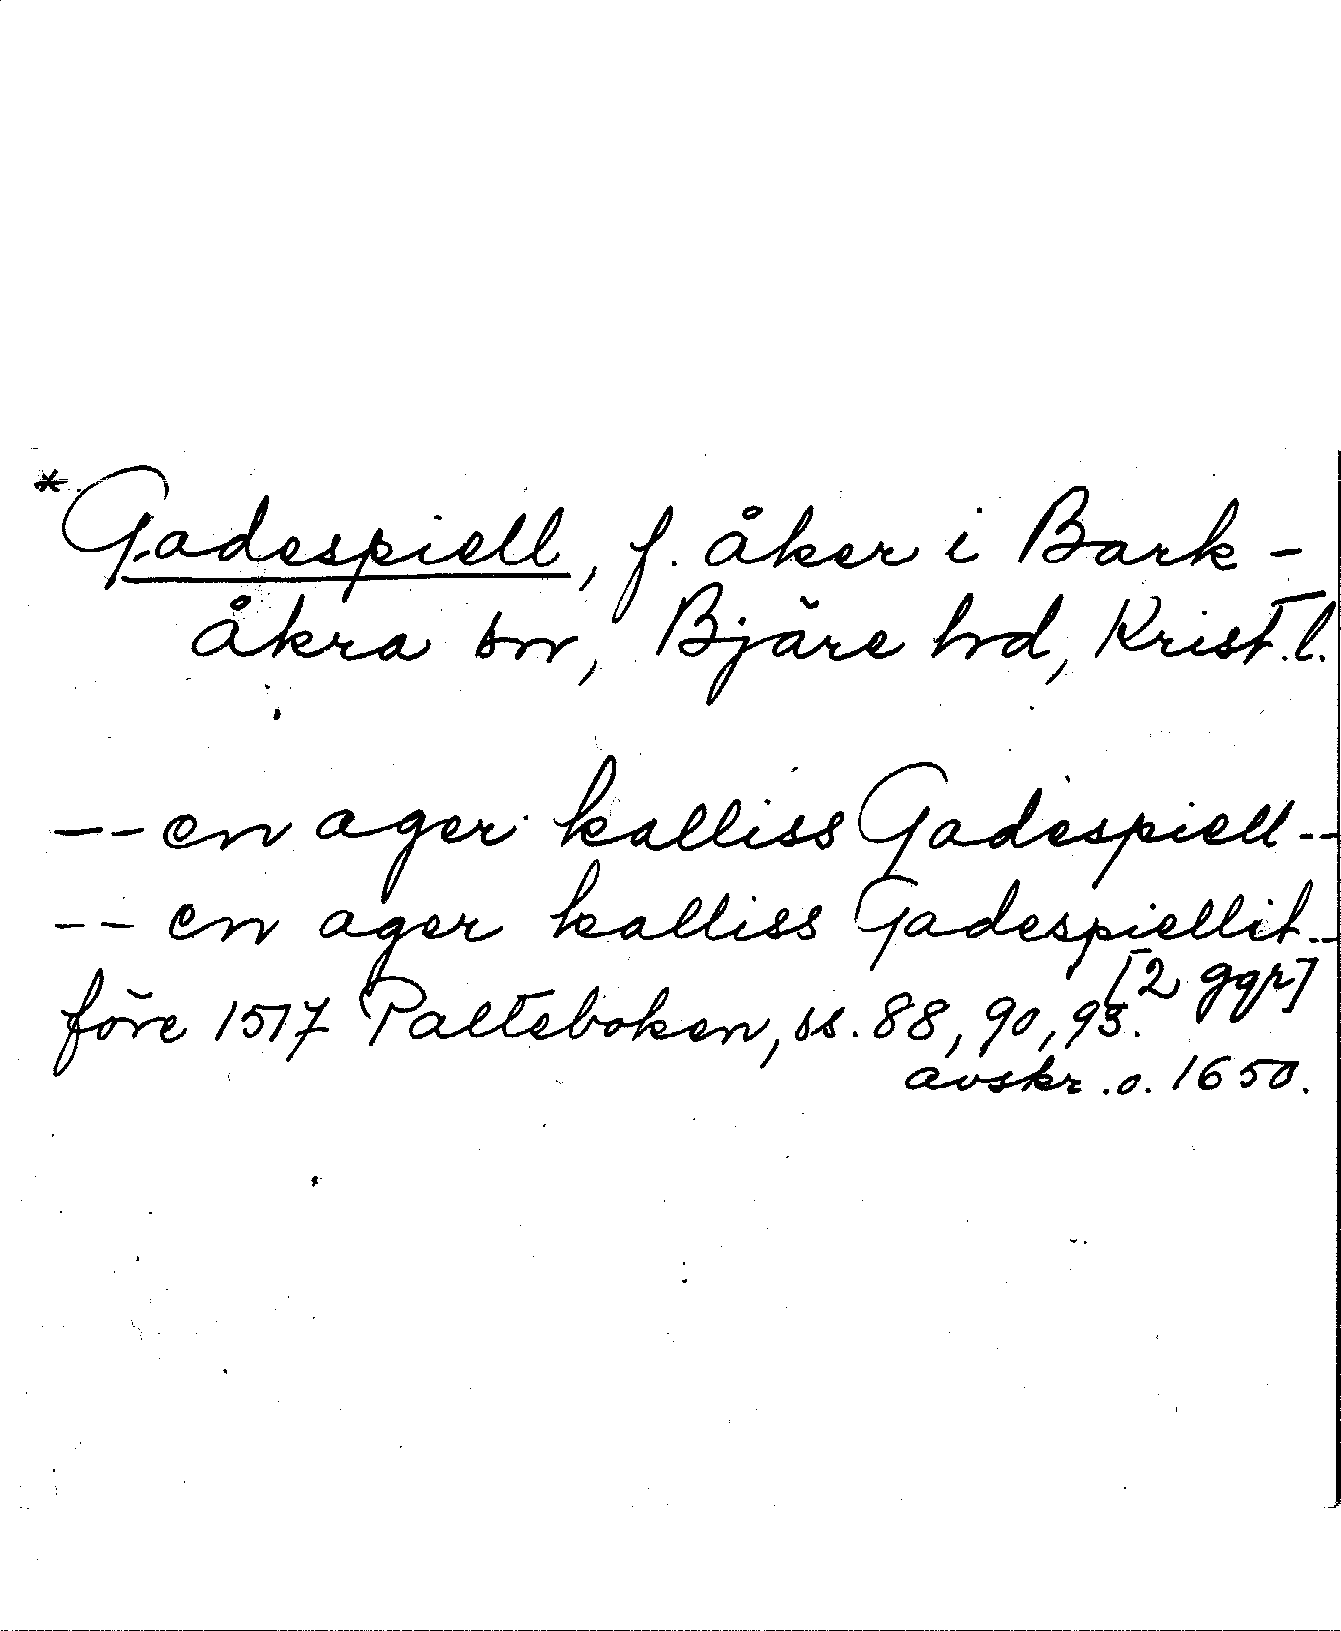 *Gadespiell, f. åker i Bark-
åkra sn, Bjäre hd, Krist.l.
-- en ager kalliss Gadespiell --
-- en ager kalliss Gadespiellit --
[2 ggr]
före 1517 Palteboken, ss. 88, 90, 93.
avskr. o. 1650.